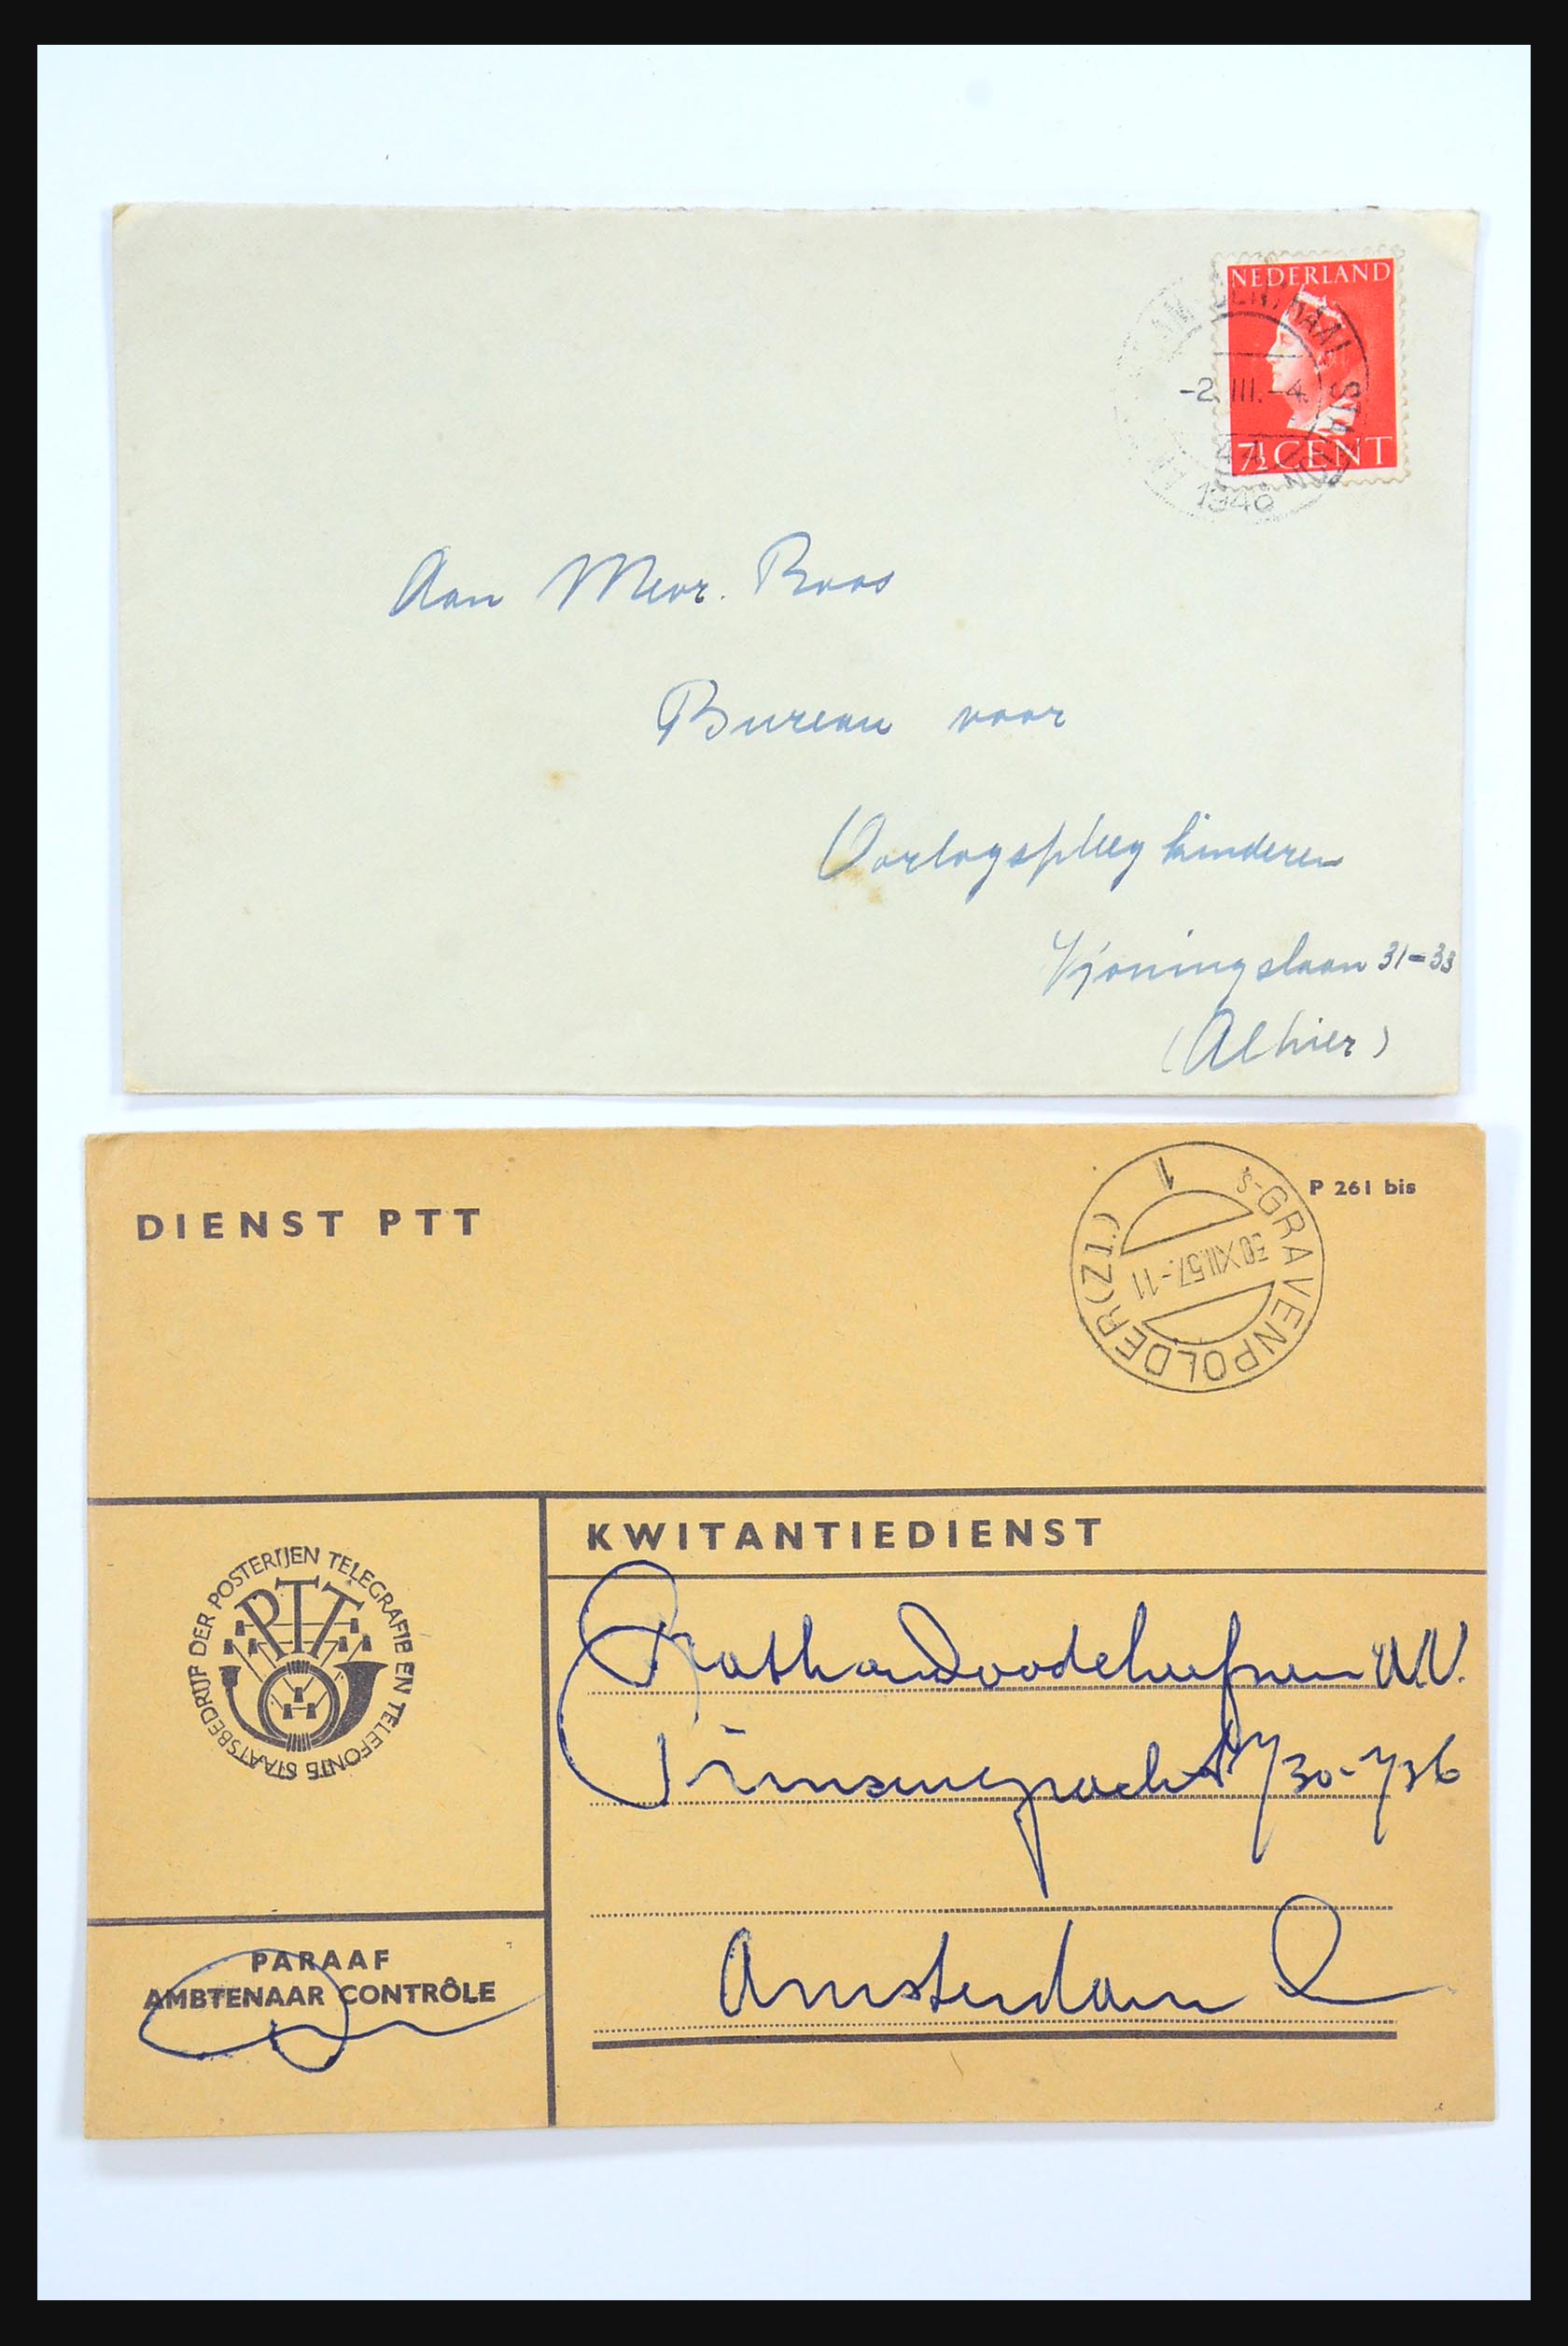 NEDERLAND
CENTRAAL STATION
-2.III.-4.
1946
7½ CENT
Aan Mevr. Roos
Bureau voor
Oorlogspleegkinderen
Koningslaan 31-33
(Alhier)
DIENST PTT
P 261 bis
's-GRAVENPOLDER (TZ.) 1
30.XII.57.-11
KWITANTIEDIENST
STAATSBEDRIJF DER POSTERIJEN TELEGRAFIE EN TELEFONIE
PTT
N.V.
Prinsengracht 730-736
Amsterdam C
PARAAF
AMBTENAAR CONTRÔLE